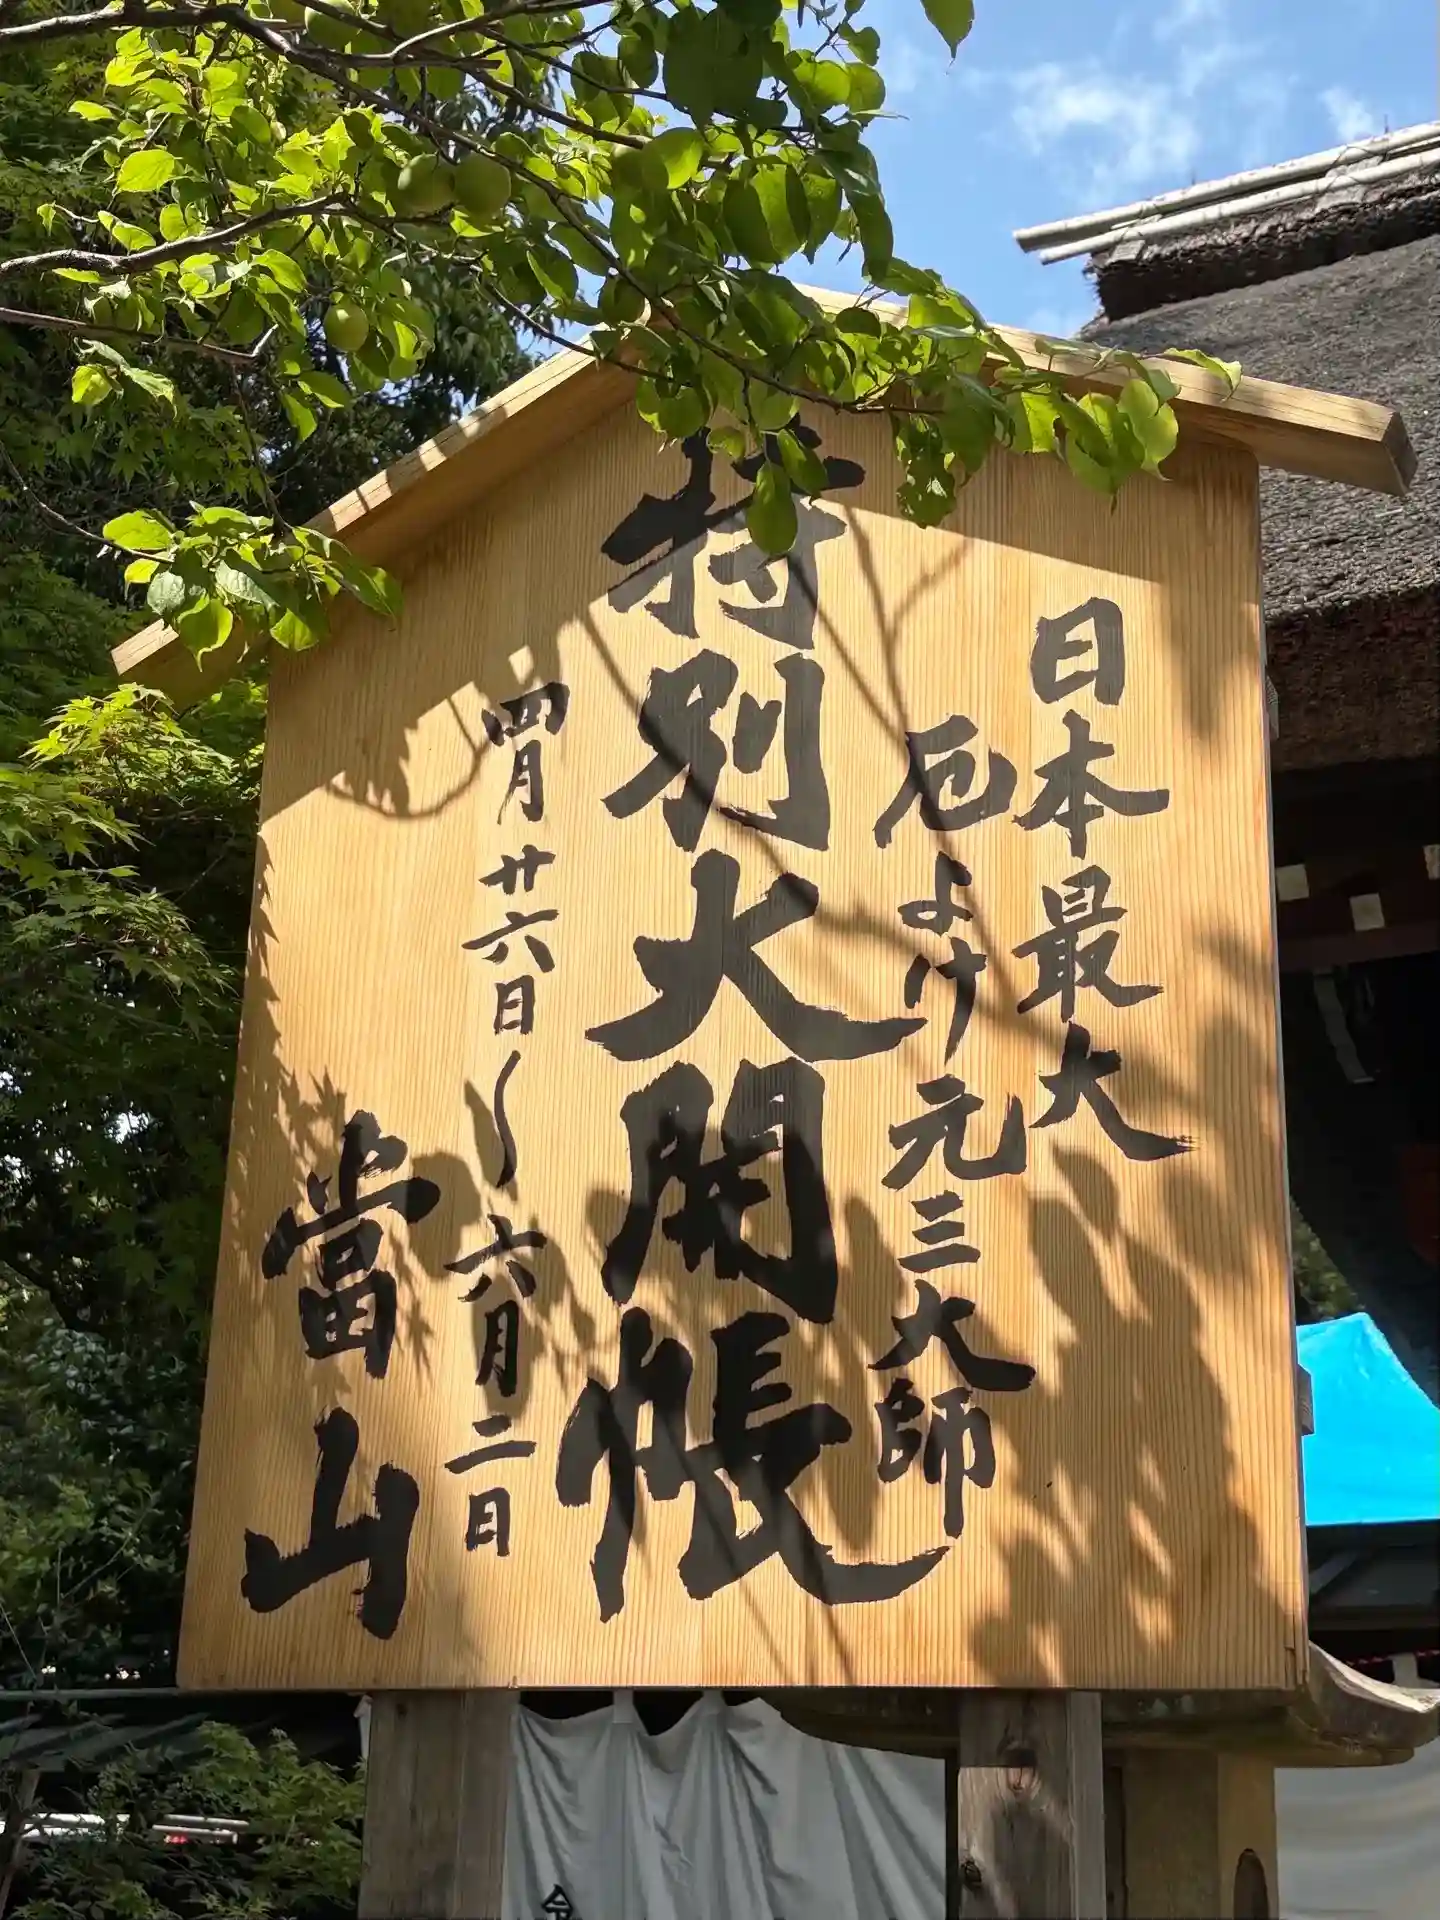 日本最大
厄よけ元三大師
特別大開帳
四月廿六日〜六月二日
當山
令